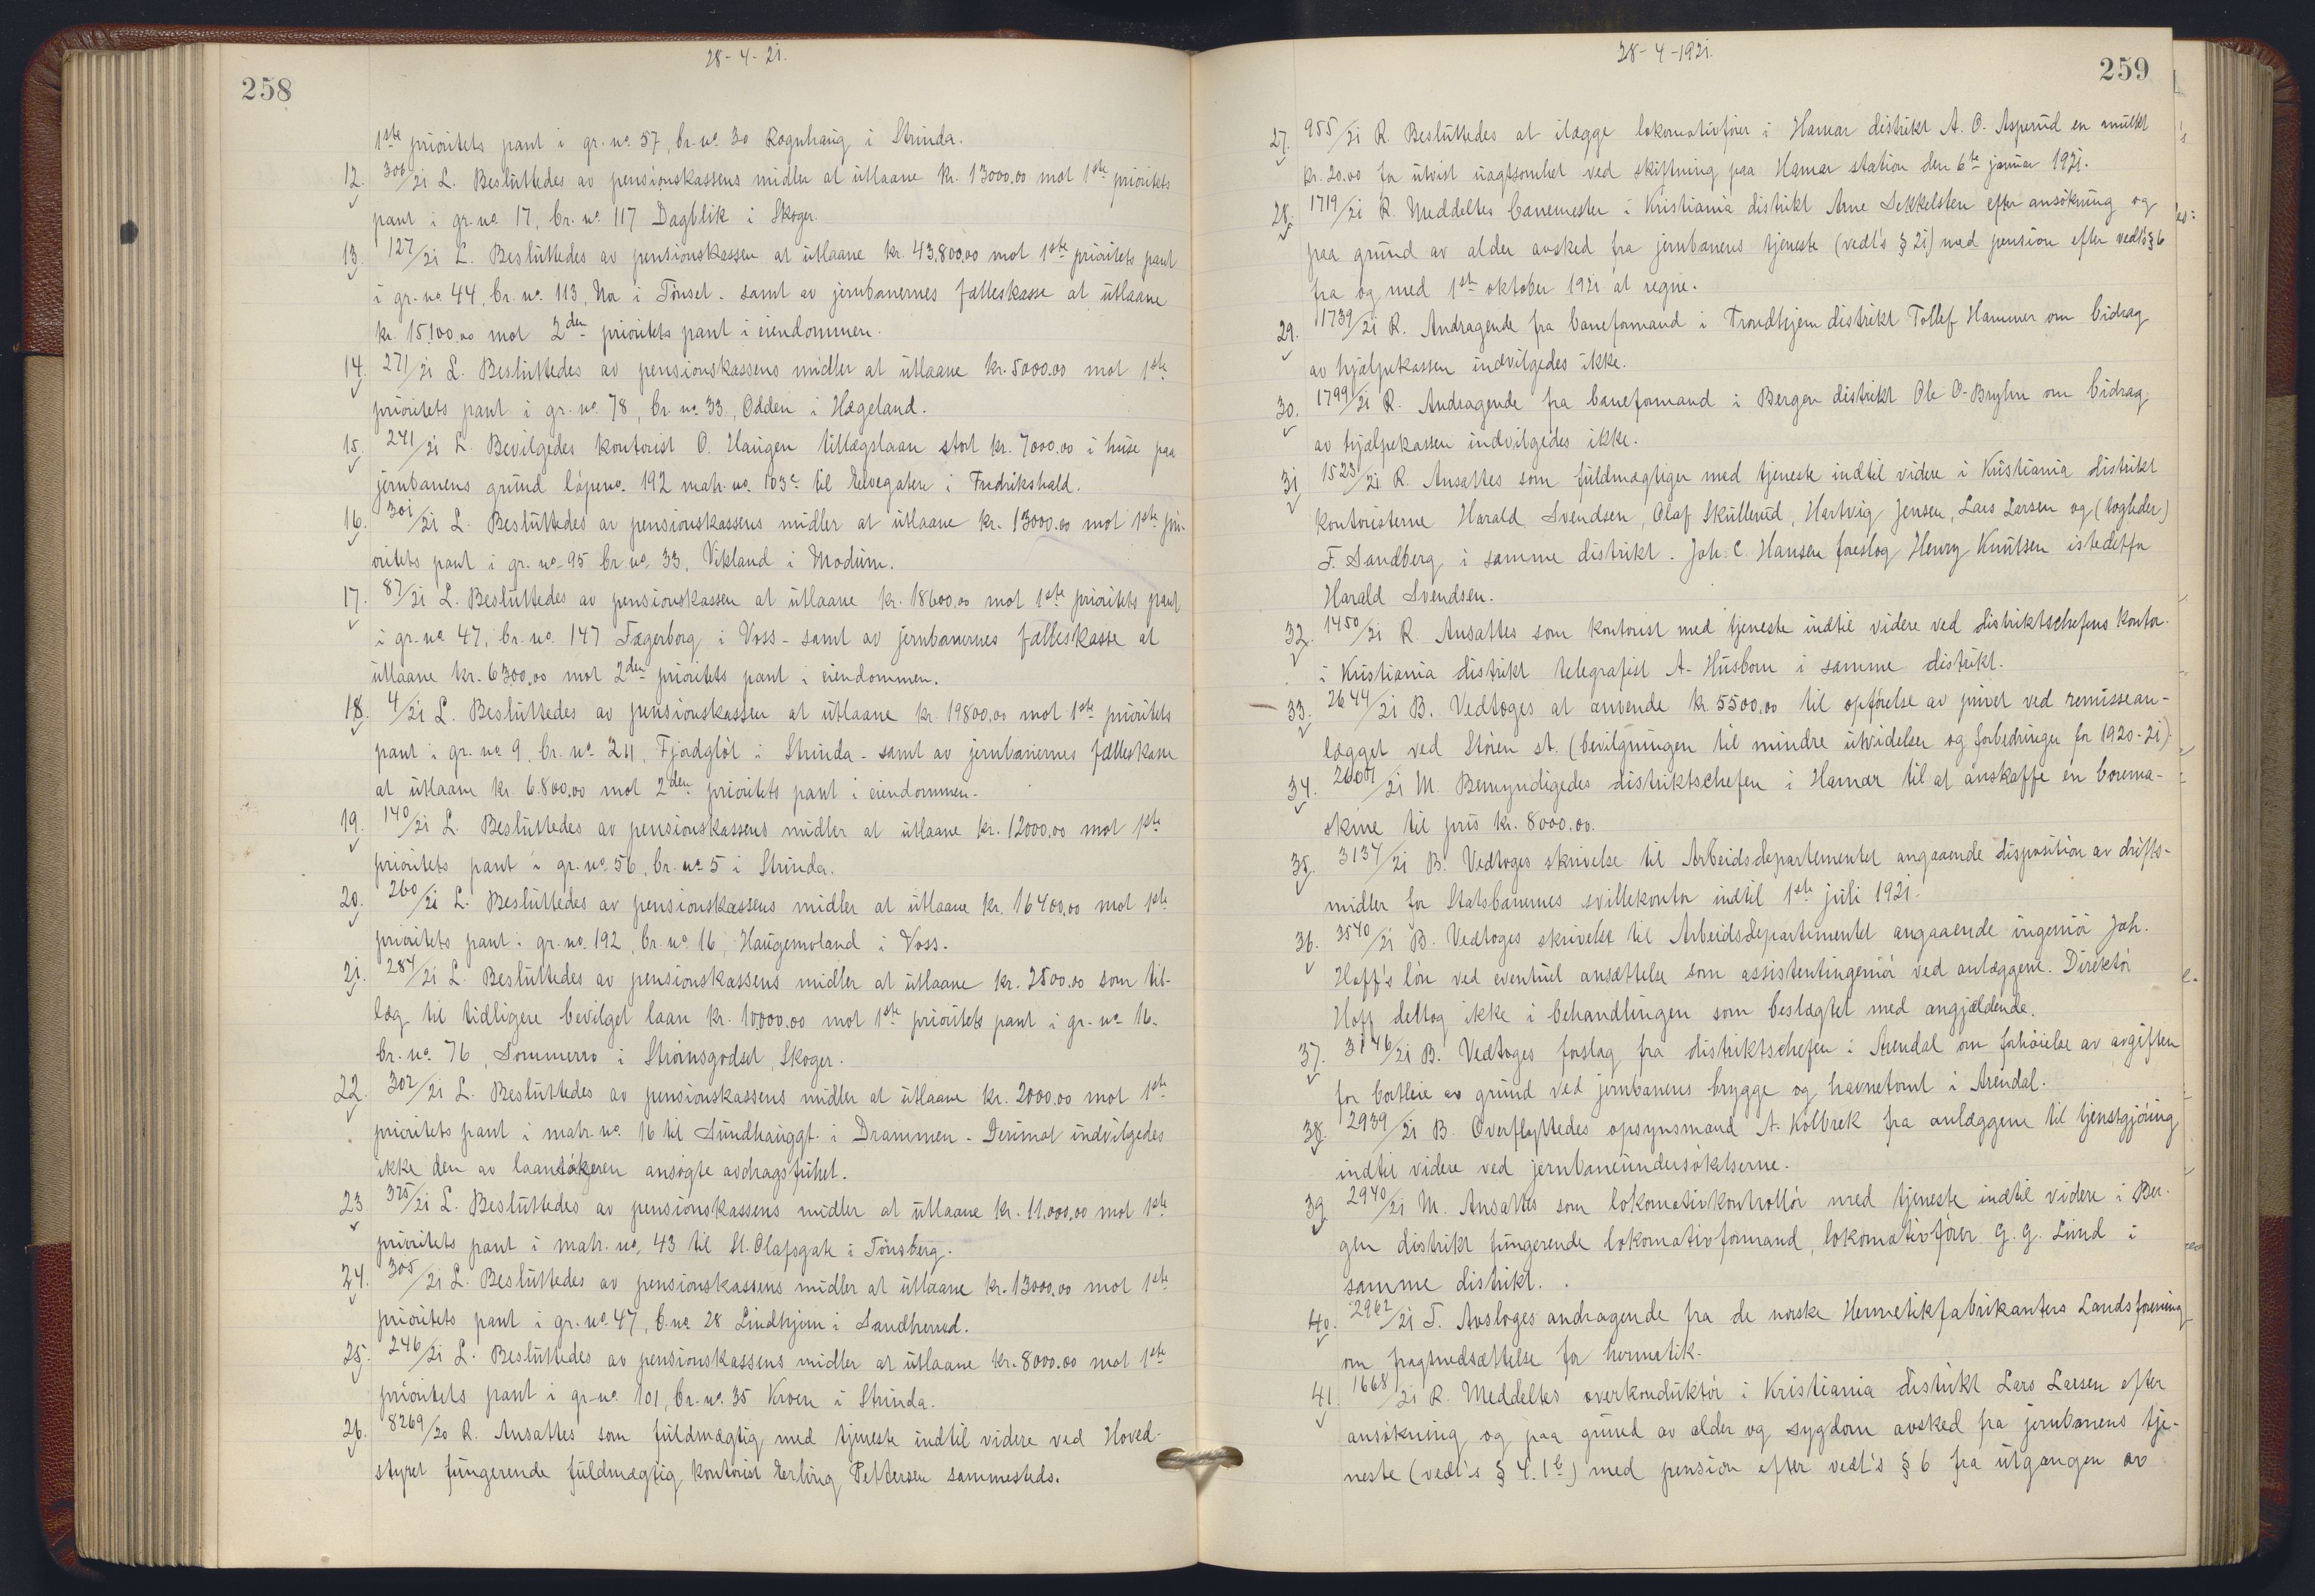 258
28-4-21.
1ste prioritets pant i gr. no. 57, br. no. 30 Rognhaug i Strinda.
12. 306/21 L. Besluttedes av pensionskassens midler at utlaane kr. 13000.00 mot 1ste prioritets
pant i gr. no. 17, br. no. 117 Dagblik i Skoger.
13. 127/21 L. Besluttedes av pensionskassen at utlaane kr. 43,800,00 mot 1ste prioritets pant
i gr. no. 44, br. no. 113, Mo i Tönset - samt av jernbanernes fælleskasse at utlaane
kr. 15,100,00 mot 2den prioritets pant i eiendommen.
14. 271/21 L. Besluttedes av pensionskassens midler at utlaane kr. 5000.00 mot 1ste
prioritets pant i gr. no. 78, br. no. 33, Odden i Hægeland.
15. 241/21 L. Bevilgedes kontorist O. Haugen tillægslaan stort kr. 7000.00 i huse paa
jernbanens grund löpeno. 192 matr. no. 103c til Elvegaten i Fredrikshald.
16. 301/21 L. Besluttedes av pensionskassens midler at utlaane kr. 13000.00 mot 1ste pri-
oritets pant i gr. no. 95 br. no. 33, Vikland i Modum.
17. 87/21 L. Besluttedes av pensionskassen at utlaane kr. 18600.00 mot 1ste prioritets pant
i gr. no. 47, br. no. 147 Fagerborg i Voss - samt av jernbanernes fælleskasse at
utlaane kr. 6300,00 mot 2den prioritets pant i eiendommen.
18. 4/21 L. Besluttedes av pensionskassen at utlaane kr. 19800,00 mot 1ste prioritets
pant i gr. no. 9, br. no. 211, Fjordgløt i Strinda - samt av jernbanernes fælleskasse
at utlaane kr. 6.800,00 mot 2den prioritets pant i eiendommen.
19. 140/21 L. Besluttedes av pensionskassens midler at utlaane kr. 12000,00 mot 1ste
prioritets pant i gr. no. 56, br. no. 5 i Strinda.
20. 260/21 L. Besluttedes av pensionskassens midler at utlaane kr. 16400,00 mot 1ste
prioritets pant i gr. no. 192, br. no. 16, Haugemoland i Voss.
21. 284/21 L. Besluttedes av pensionskassens midler at utlaane kr. 2500.00 som til-
læg til tidligere bevilget laan kr. 10000.00 mot 1ste prioritets pant i gr. no. 16.
br. no. 76, Sommerro i Strömsgodset, Skoger.
22. 302/21 L. Besluttedes av pensionskassens midler at utlaane kr. 2000.00 mot 1ste
prioritets pant i matr. no. 16 til Sundhauggt. i Drammen - Derimot indvilgedes
ikke den av laansökeren ansögte avdragsfrihet.
23. 325/21 L. Besluttedes av pensionskassens midler at utlaane kr. 11.000,00 mot 1ste
prioritets pant i matr. no. 43 til St. Olafsgate i Tönsberg.
24. 305/21 L. Besluttedes av pensionskassens midler at utlaane kr. 13000,00 mot 1ste
prioritets pant i gr. no. 47, b. no. 28 Lindhjem i Sandherred.
25. 246/21 L. Besluttedes av pensionskassens midler at utlaane kr. 8000.00 mot 1ste
prioritets pant i gr. no. 101, br. no. 35 Kroen i Strinda.
26. 8269/20 R. Ansattes som fuldmægtig med tjeneste indtil videre ved Hoved-
styret fungerende fuldmægtig, kontorist Erling Pettersen sammesteds.
28-4-1921.
259
27. 955/21 R. Besluttedes at ilægge lokomotivförer i Hamar distrikt A. O. Asperud en mulkt
kr. 20.00 for utvist uagtsomhet ved skiftning paa Hamar station den 6te januar 1921.
28. 1719/21 R. Meddeltes banemester i Kristiania distrikt Arne Sekkelsten efter ansökning og
paa grund av alder avsked fra jernbanens tjeneste (vedt's § 21) med pension efter vedt's § 6
fra og med 1ste oktober 1921 at regne.
29. 1739/21 R. Andragende fra baneformand i Trondhjem distrikt Tollef Hammer om bidrag
av hjælpekassen indvilgedes ikke.
30. 1799/21 R. Andragende fra baneformand i Bergen distrikt Ole O. Bryhn om bidrag
av hjælpekassen indvilgedes ikke.
31. 1523/21 R. Ansattes som fuldmægtiger med tjeneste indtil videre i Kristiania distrikt
kontoristerne Harald Svendsen, Olaf Skullerud, Hartvig Jensen, Lars Larsen og (togleder)
F. Sandberg i samme distrikt. Joh. C. Hansen foreslog Henry Knutsen istedetfor
Harald Svendsen.
32. 1450/21 R. Ansattes som kontorist med tjeneste indtil videre ved distriktschefens kontor
i Kristiania distrikt telegrafist A. Husbom i samme distrikt.
33. 2644/21 B. Vedtoges at anvende kr. 5500.00 til opförelse av privet ved remissean-
lægget ved Stören st. (bevilgningen til mindre utvidelser og forbedringer for 1920-21).
34. 2601/21 M. Bemyndigedes distriktschefen i Hamar til at anskaffe en borema-
skine til pris kr. 8000.00.
35. 3137/21 B. Vedtoges skrivelse til Arbeidsdepartementet angaaende disposition av drifts-
midler for Statsbanernes svillekontor indtil 1ste juli 1921.
36. 3540/21 B. Vedtoges skrivelse til Arbeidsdepartementet angaaende ingeniör Joh.
Hoff's lön ved eventuel ansættelse som assistentingeniör ved anlæggene. Direktör
Hoff deltog ikke i behandlingen som beslægtet med angjældende.
37. 3146/21 B. Vedtoges forslag fra distriktschefen i Arendal om forhöielse av avgiften
for bortleie av grund ved jernbanens brygge og havnetomt i Arendal.
38. 2939/21 B. Overflyttedes opsynsmand A. Kolbrek fra anlæggene til tjenstgjöring
indtil videre ved jernbaneundersökelserne.
39. 2940/21 M. Ansattes som lokomotivkontrollör med tjeneste indtil videre i Ber-
gen distrikt fungerende lokomotivformand, lokomotivförer G. G. Lund i
samme distrikt.
40. 2962/21 T. Avsloges andragende fra de norske Hermetikfabrikanters Landsforening
om fragtnedsættelse for hermetik.
41. 1668/21 R. Meddeltes overkonduktör i Kristiania distrikt Lars Larsen efter
ansökning og paa grund av alder og sygdom avsked fra jernbanens tje-
neste (vedt's § 4. 1b) med pension efter vedt's § 6 fra utgangen av